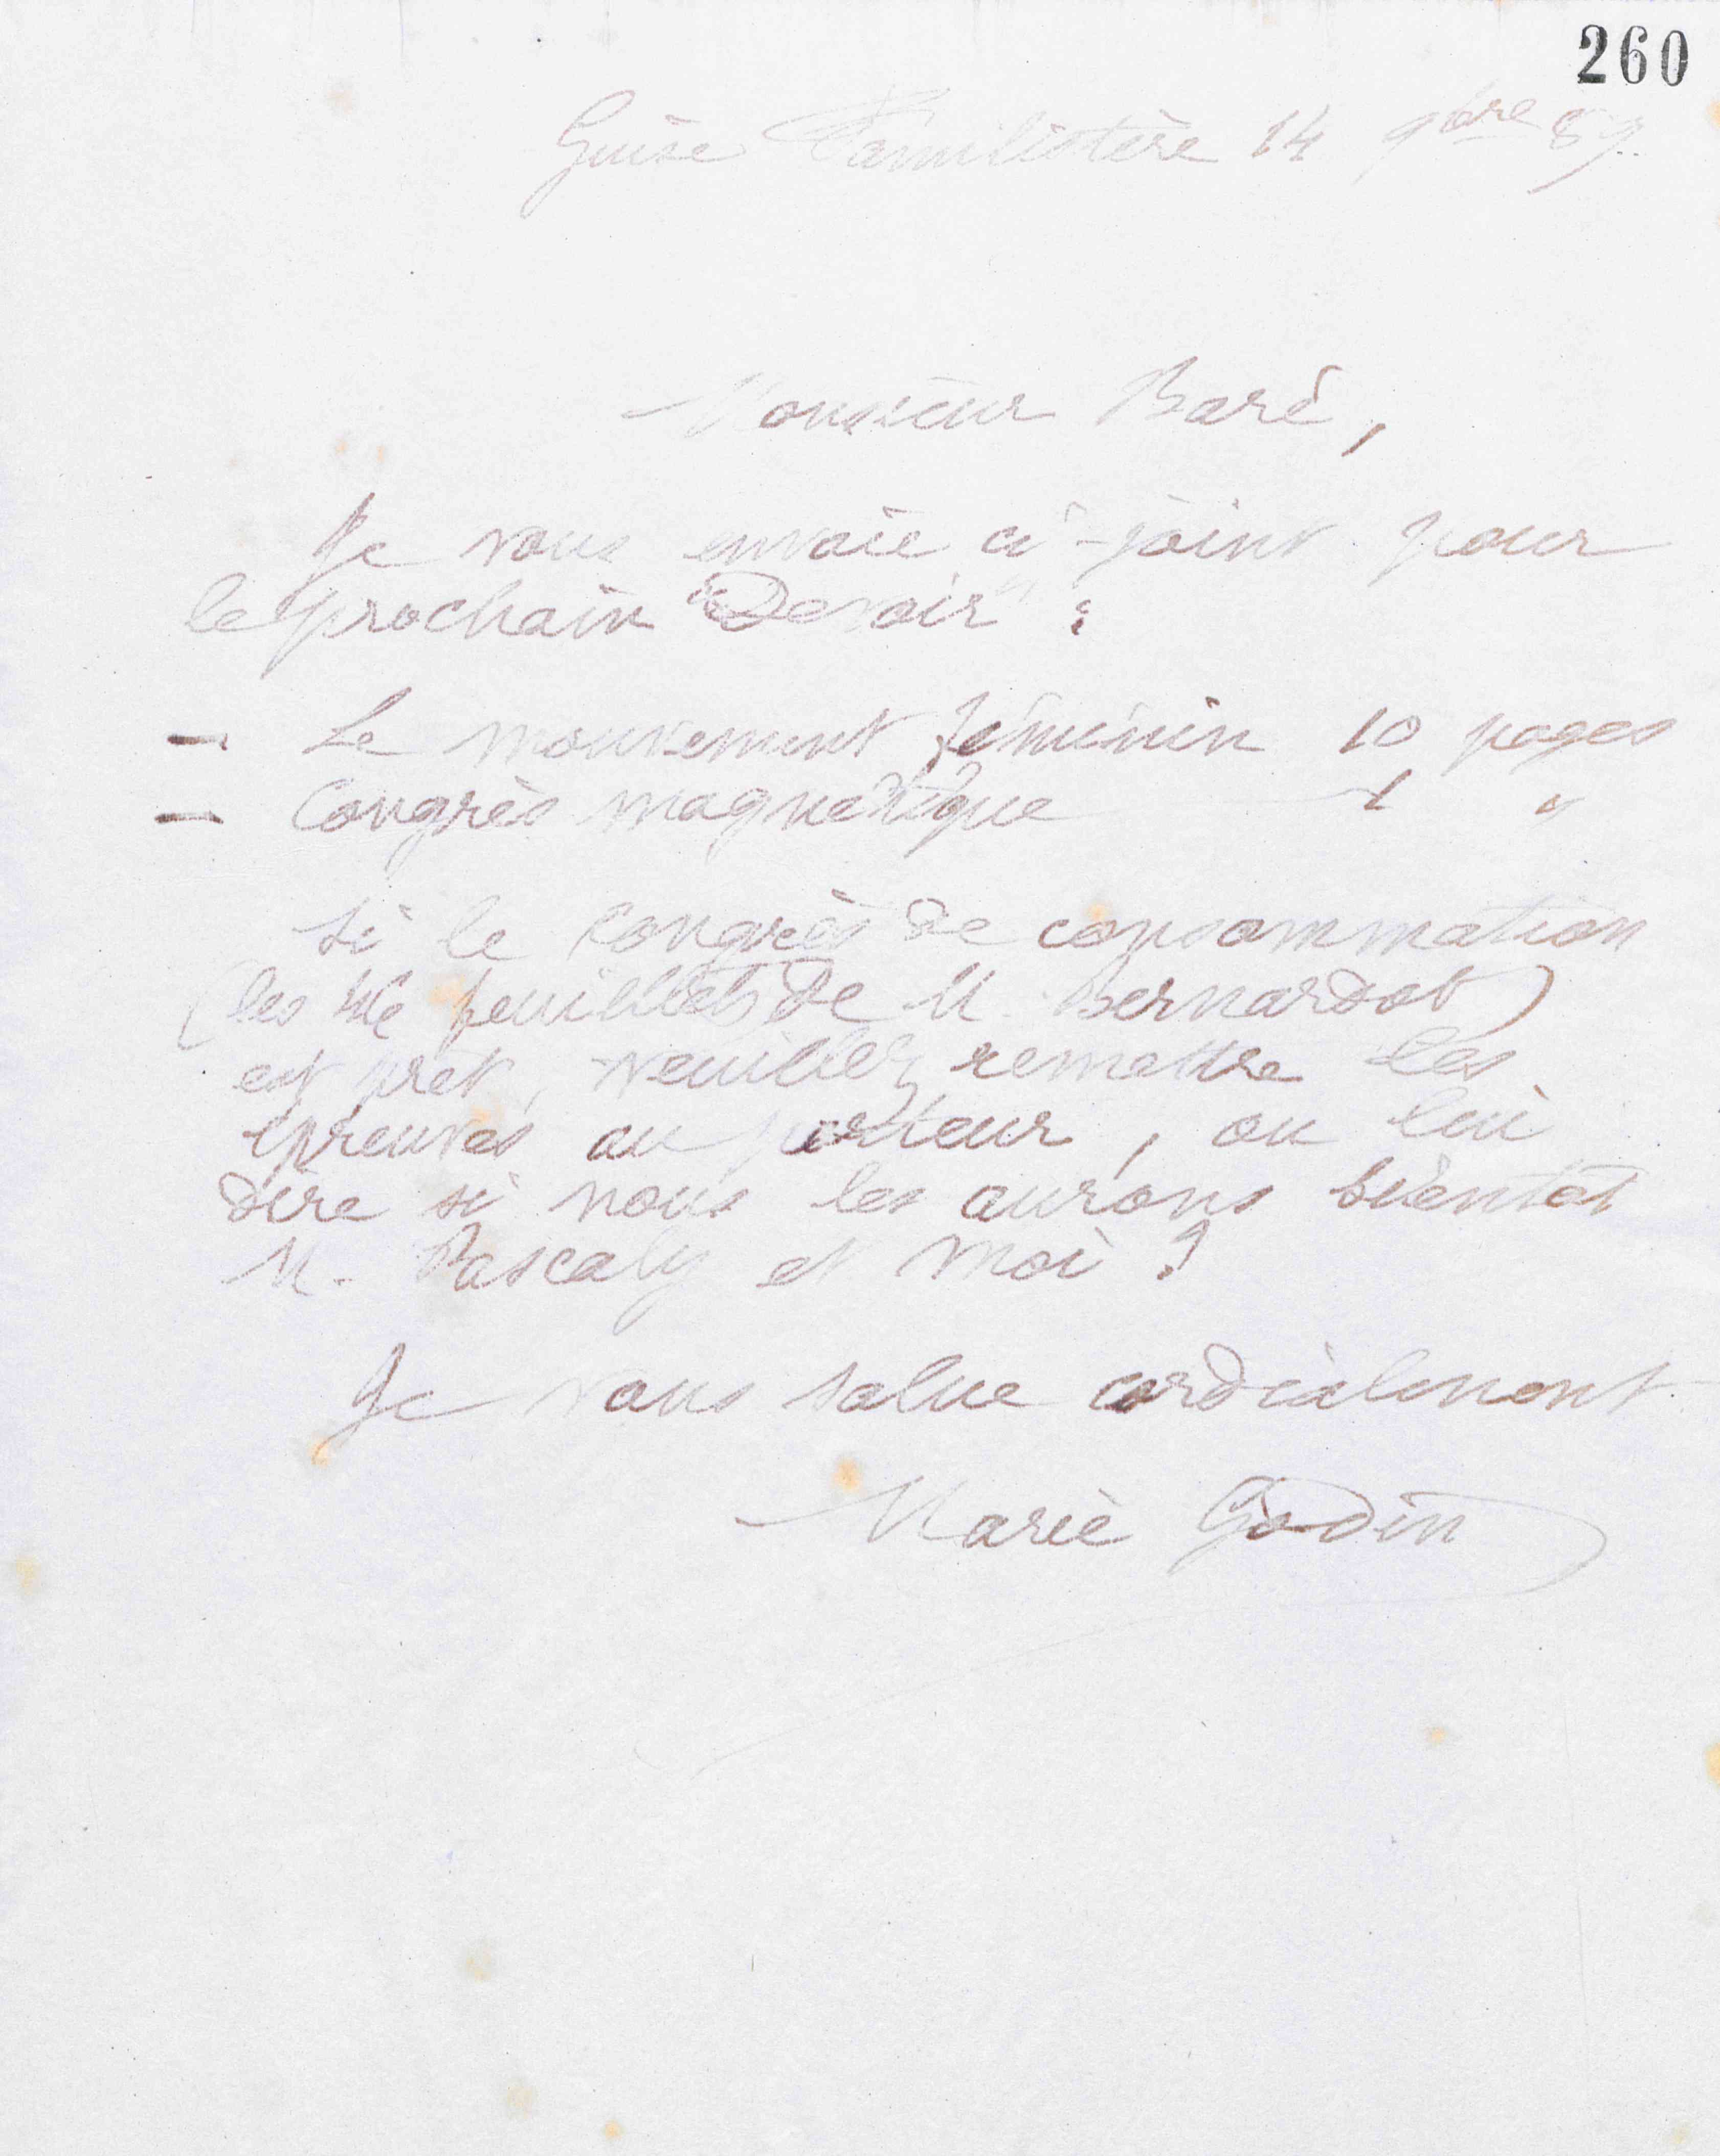 260
Guise Familistère 14 9bre 89
Monsieur Baré,
Je vous envoie ci-joint pour
le prochain "Devoir" :
— Le mouvement féminin 10 pages
— Congrès magnétique 1 "
Si le Congrès de consommation
(les feuillets de M. Bernardot)
est prêt, veuillez remettre les
épreuves au porteur, ou lui
dire si nous les aurons bientôt
M. Pascaly et moi ?
Je vous salue cordialement
Marie Godin